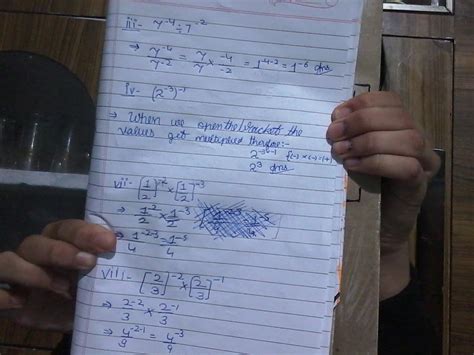 iii- 7⁻⁴ ÷ 7⁻²
⇒ 7⁻⁴/7⁻² = 7/7 × -4/-2 = 1⁻⁴⁻² = 1⁻⁶ Ans
iv- (2⁻³)⁻¹
⇒ When we open the bracket the
values get multiplied therefore:-
2⁻³ˣ⁻¹ {(-) × (-) = (+)
2³ Ans
vii- [1/2]⁻² × [1/2]⁻³
⇒ 1⁻²/2 × 1⁻³/2
⇒ 1⁻²⁻³/4 = 1⁻⁵/4
viii- [2/3]⁻² × [2/3]⁻¹
⇒ 2⁻²/3 × 2⁻¹/3
⇒ 4⁻²⁻¹/9 = 4⁻³/9